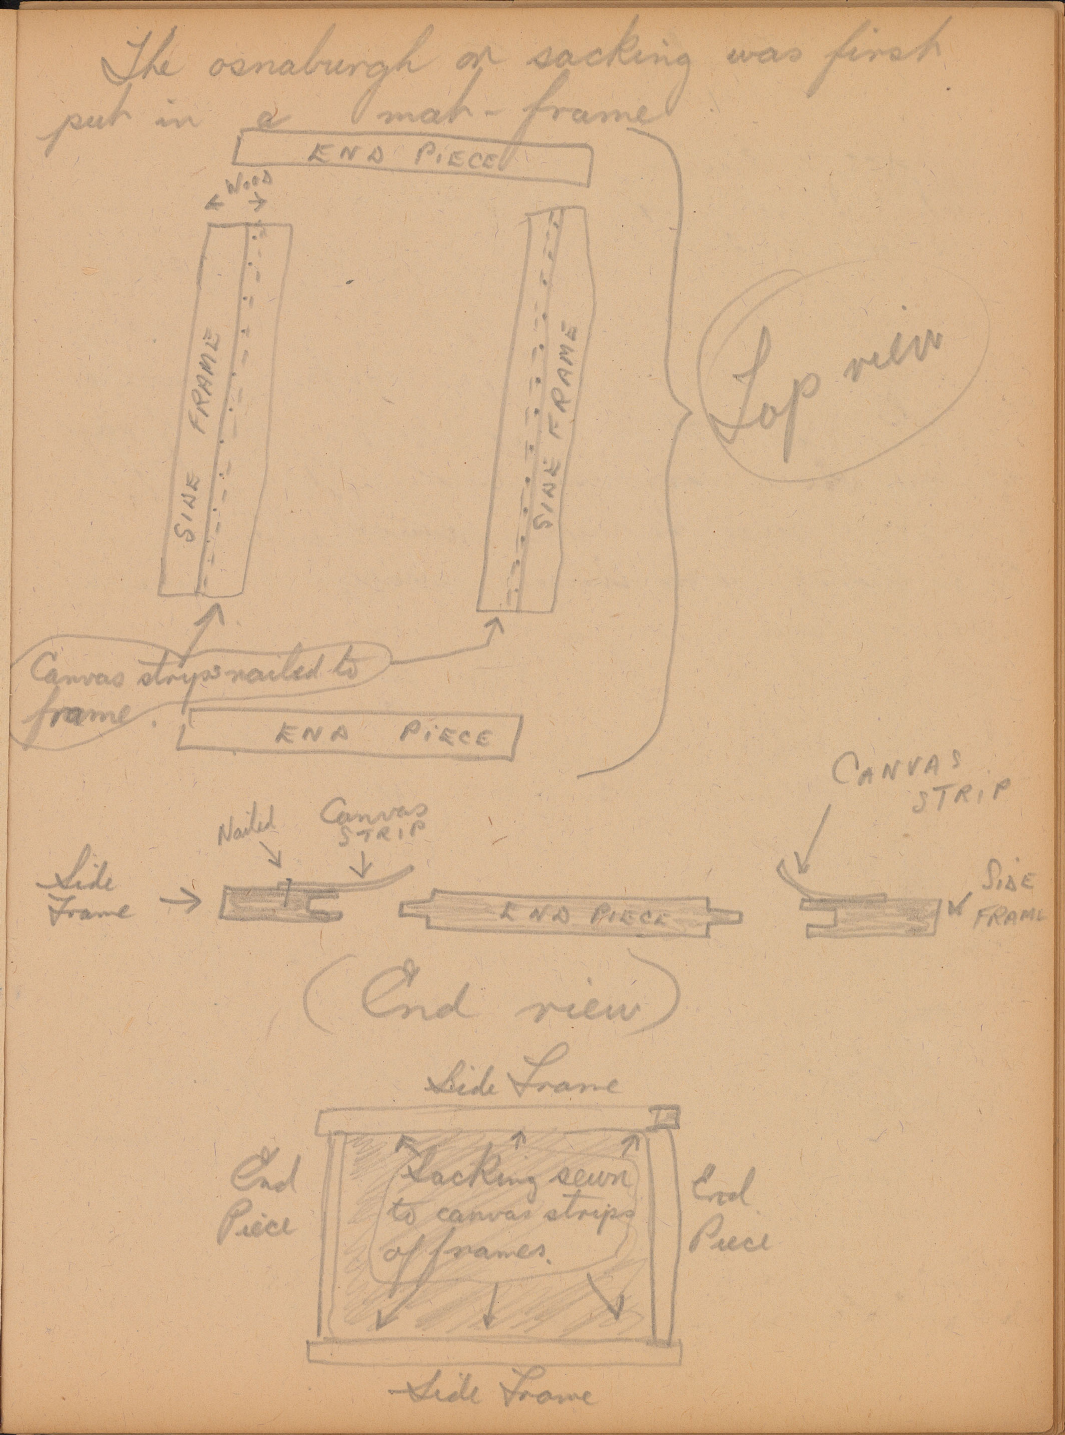 The osnaburgh or sacking was first
put in a mat-frame
END PIECE
Wood
SIDE FRAME
SIDE FRAME
Top view
Canvas strips nailed to
frame.
END PIECE
CANVAS
STRIP
Nailed
Canvas
STRIP
Side
Frame
END PIECE
SIDE
FRAME
(End view)
Side Frame
End
Piece
Sacking sewn
to canvas strips
of frames.
End
Piece
Side Frame